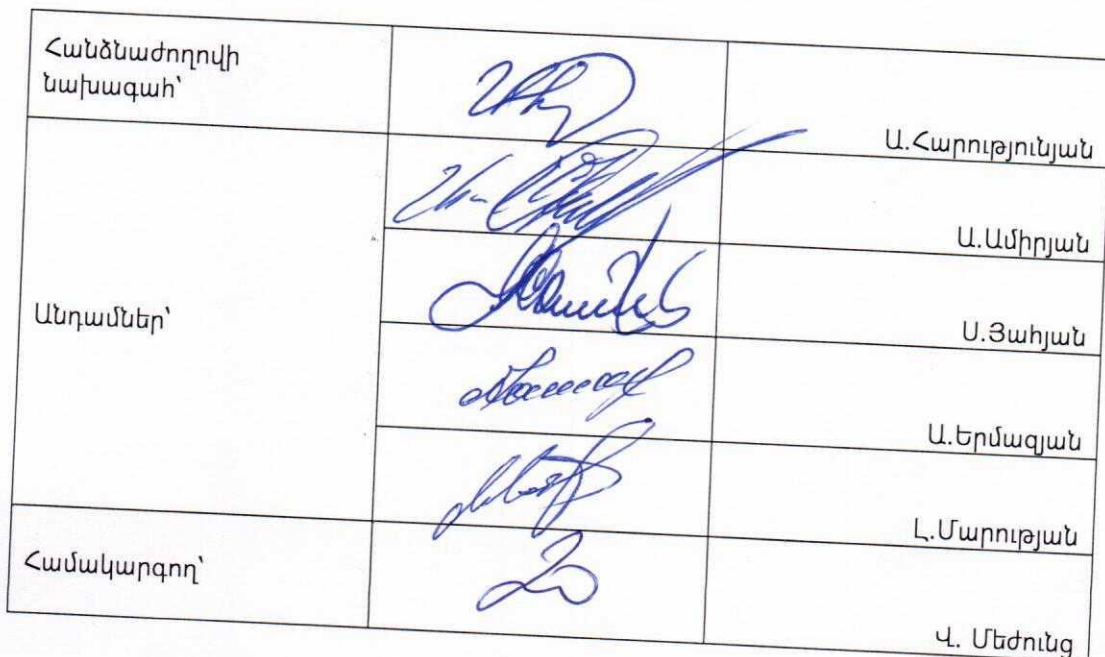 Հանձնաժողովի
նախագահ՝
Ա.Հարությունյան
Անդամներ՝
Ա.Ամիրյան
Ս.Յահյան
Ա.Երմազյան
Լ.Մարության
Համակարգող՝
Վ. Մեժունց